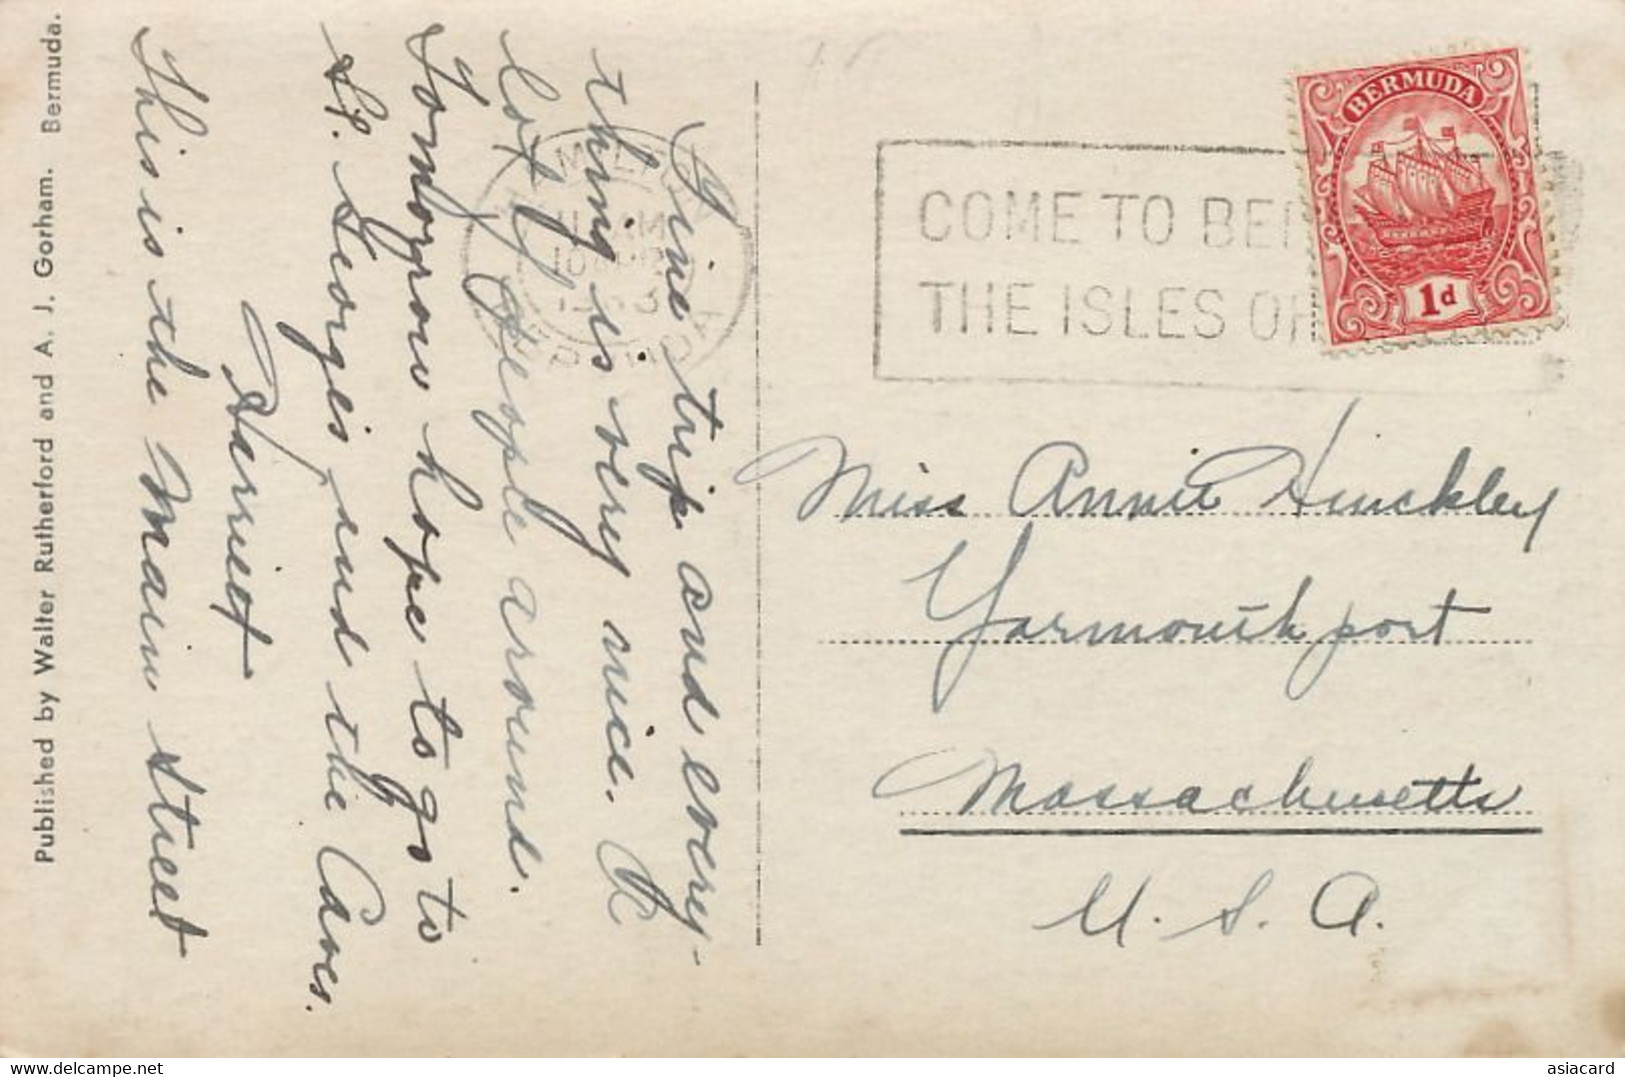 Fine trip and every-
thing is very nice. A
lot of people around.
Tomorrow hope to go to
St. George's and the Caves.
Harriet
This is the Main Street
Published by Walter Rutherford and A. J. Gorham. Bermuda.
COME TO
THE ISLES
BERMUDA
1d
Miss Annie Hinckley
Yarmouth port
Massachusetts
U. S. A.
delcampe.net
asiacard